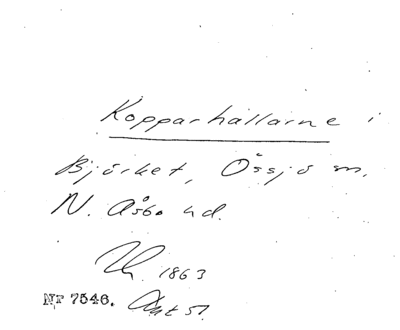 Kopparhällarne i
Björket, Össjö sn,
N. Åsbo hd.
1863
Nr 7546.